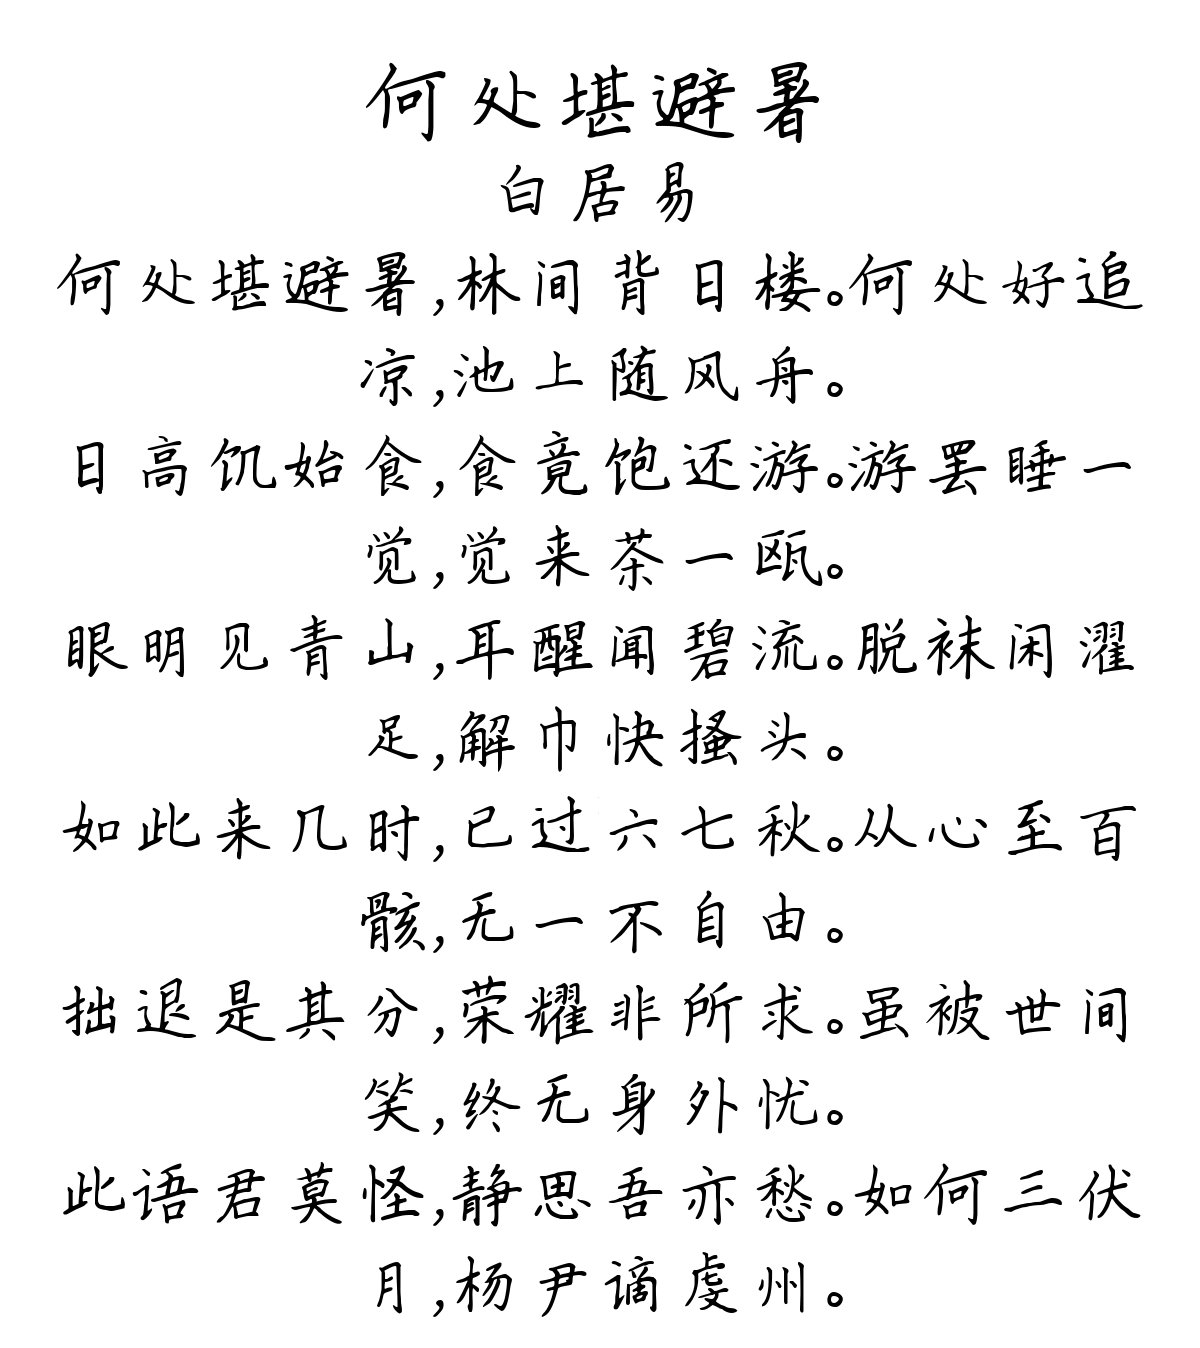 何处堪避暑
白居易
何处堪避暑,林间背日楼。何处好追
凉,池上随风舟。
日高饥始食,食竟饱还游。游罢睡一
觉,觉来茶一瓯。
眼明见青山,耳醒闻碧流。脱袜闲濯
足,解巾快搔头。
如此来几时,已过六七秋。从心至百
骸,无一不自由。
拙退是其分,荣耀非所求。虽被世间
笑,终无身外忧。
此语君莫怪,静思吾亦愁。如何三伏
月,杨尹谪虔州。